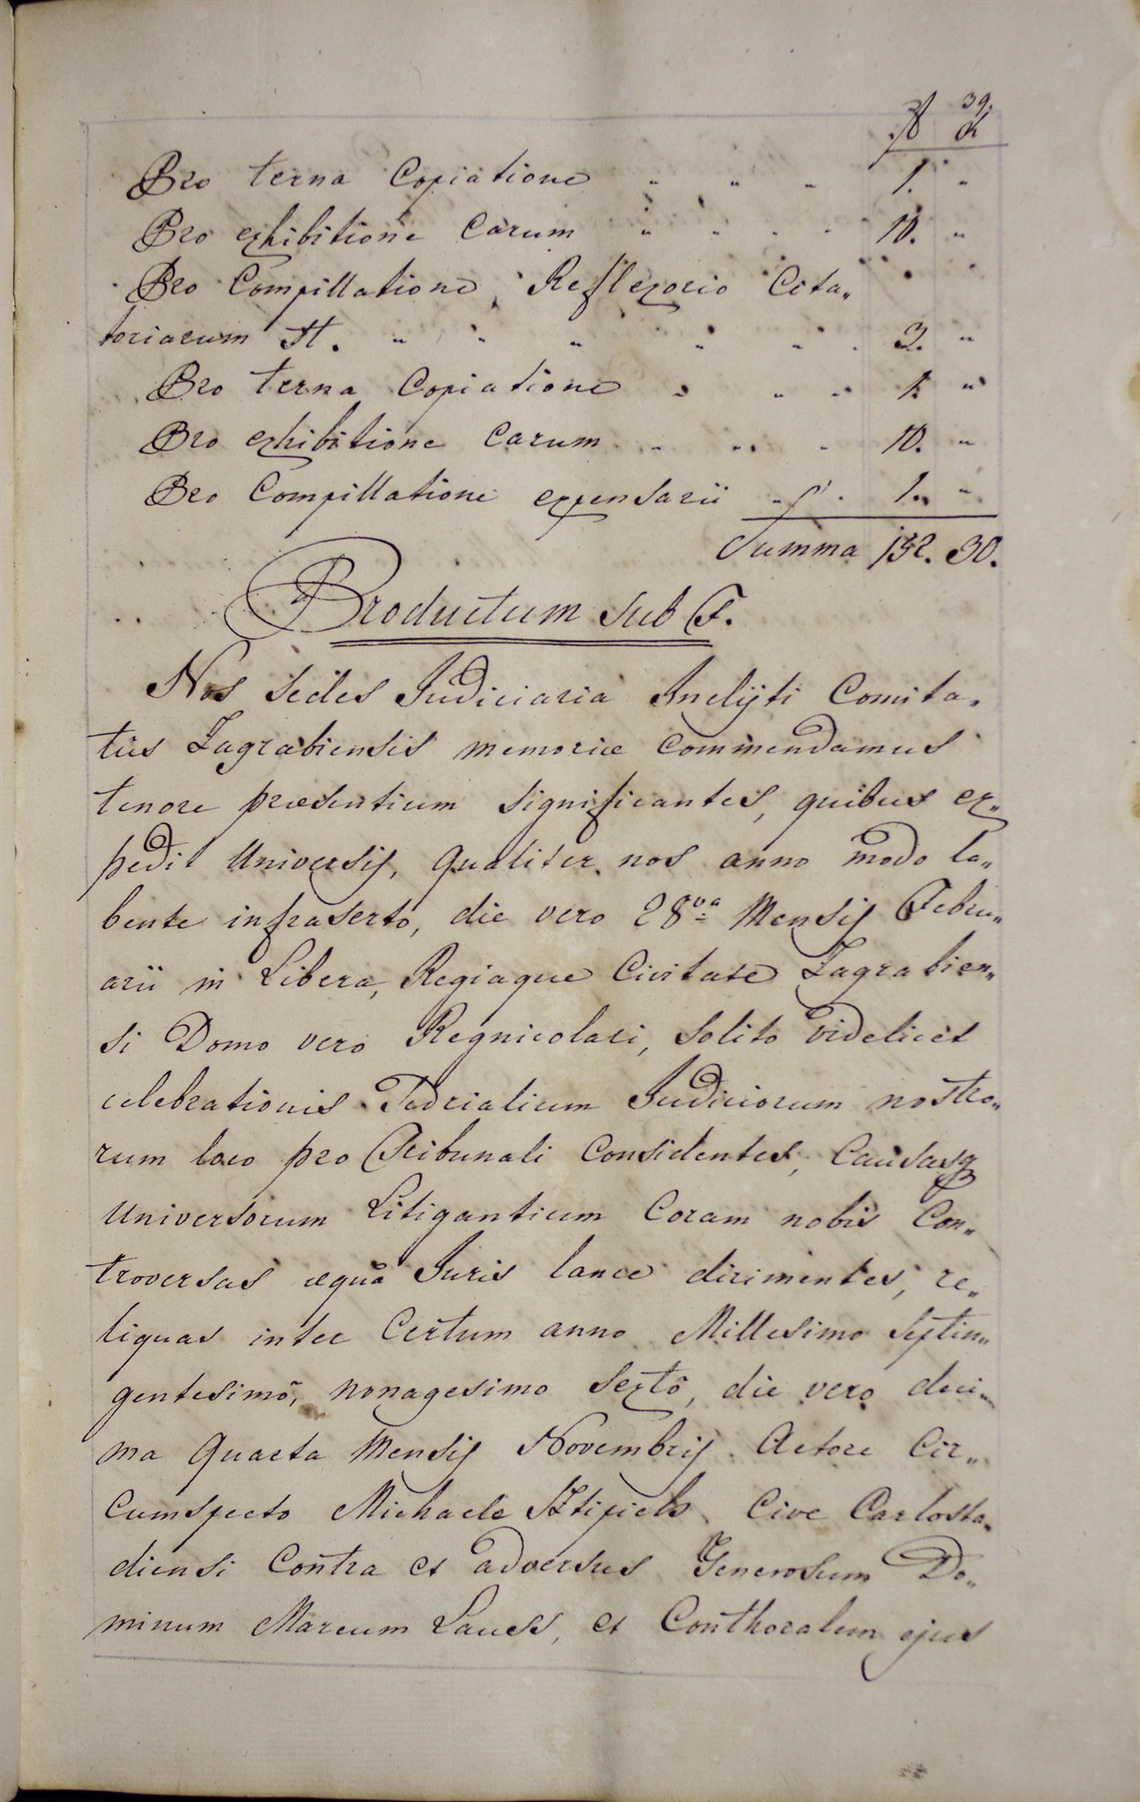 39.
f x
Pro terna Copiatione " " " 1. "
Pro exhibitione Earum " " " " 10. "
Pro Compillatione, Reflexorio Cita„
toriarum H. " " " " " " 2. "
Pro terna Copiatione " " " 1. "
Pro exhibitione Earum " " " 10. "
Pro Compillatione expensarii " f. 1. "
Summa 132. 30.
Productum sub F.
Nos Sedes Judiciaria Inclyti Comita„
tus Zagrabiensis memoriæ Commendamus
tenore præsentium significantes, quibus ex„
pedit Universis, qualiter nos anno modo la„
bente infraserto, die vero 28va Mensis Febru„
arii in Libera, Regiaque Civitate Zagrabien„
si Domo vero Regnicolari, solito videlicet
celebrationis Sedrialium Judiciorum nostro„
rum loco pro Tribunali Considentes, Causasq
Universorum Litigantium Coram nobis Con„
troversas æquâ Juris lance dirimentes, re„
liquas inter Certum anno Millesimo Septin„
gentesimo, nonagesimo sexto, die vero deci„
ma Quarta Mensis Novembris Actore Cir„
Cumspecto Michaele Cive Carlosta„
diensi Contra et adversus Generosum Do„
minum Marcum et Conthoralem ejus